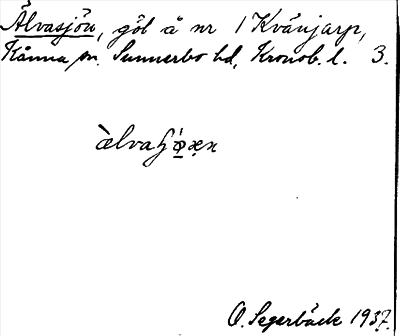 Älvasjön, göl å nr 1 Kvänjarp,
Kånna sn. Sunnerbo hd, Kronob. l. 3.
O. Segerbäck 1937.